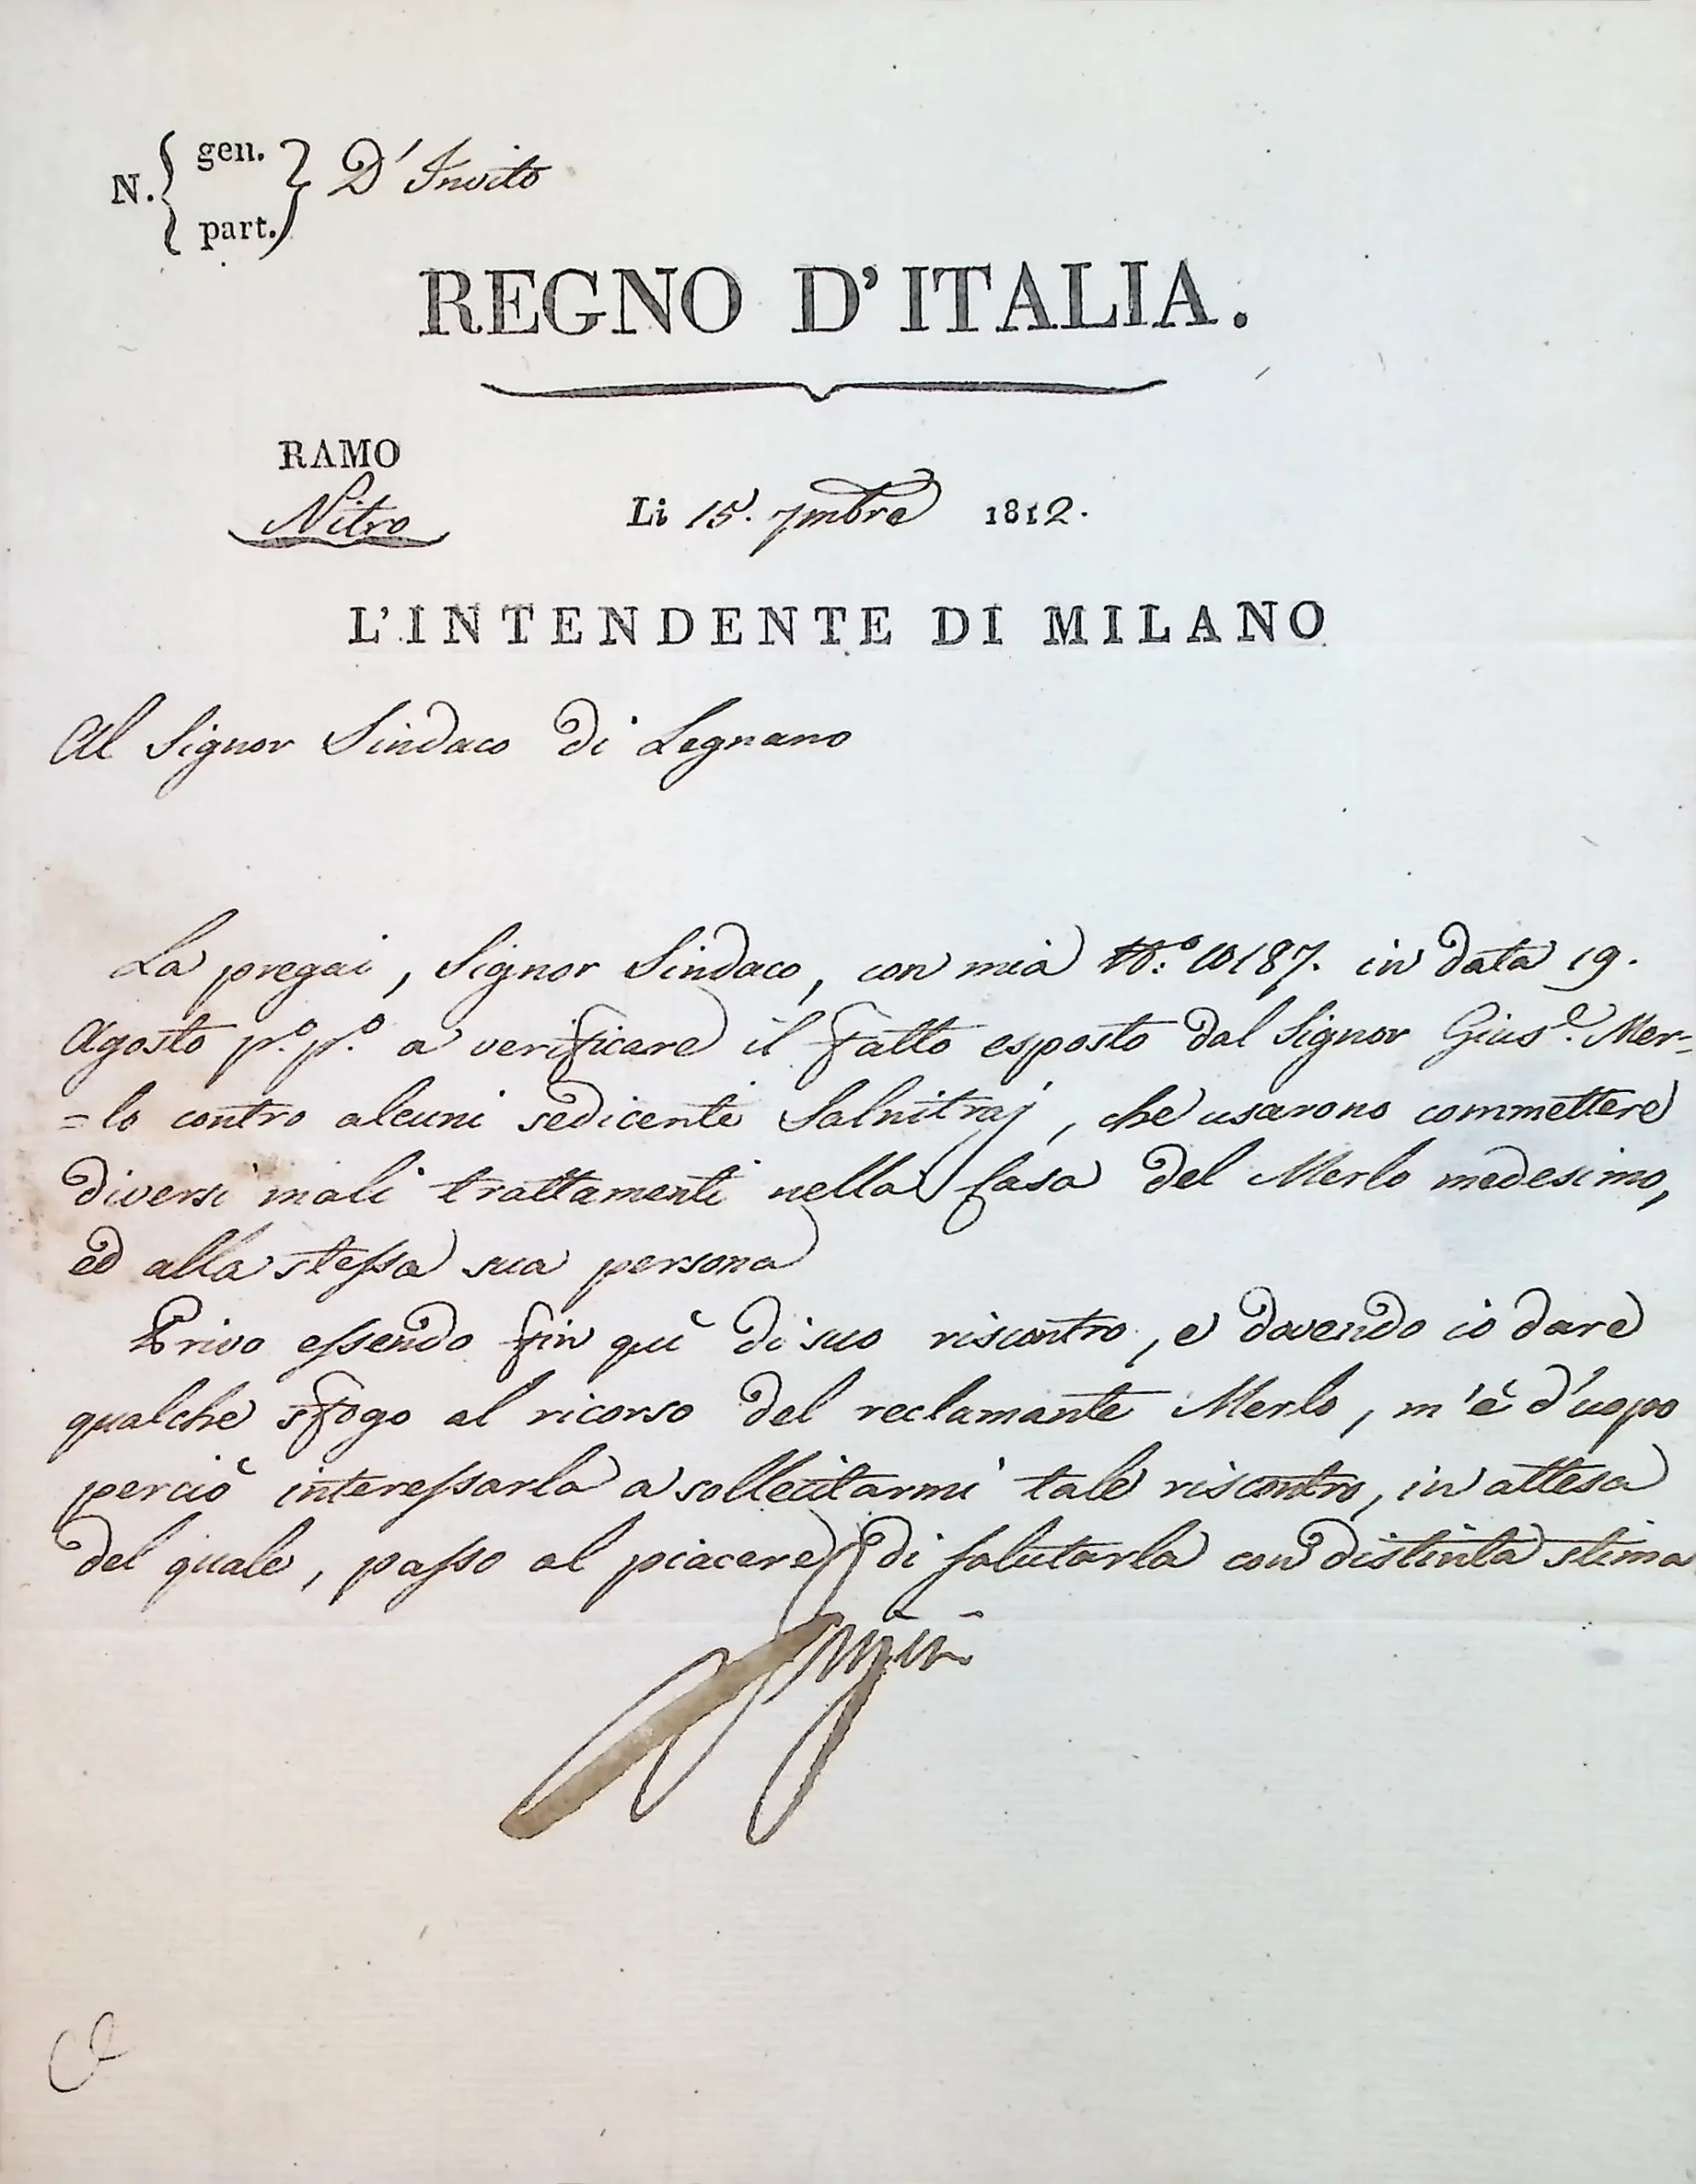 N. { gen. part. } D'Invito
REGNO D'ITALIA.
RAMO
Nitro
Li 15. 7mbre 1812.
L'INTENDENTE DI MILANO
Al Signor Sindaco di Legnano
La pregai, Signor Sindaco, con mia N.º 10187. in data 19.
Agosto p.º p.º a verificare il fatto esposto dal Signor Gius.e Mer=
=lo contro alcuni sedicenti Salnitraj, che usarono commettere
diversi mali trattamenti nella Casa del Merlo medesimo,
ed alla stessa sua persona
Privo essendo fin quì di suo riscontro, e dovendo io dare
qualche sfogo al ricorso del reclamante Merlo, m'è d'uopo
perciò interessarla a sollecitarmi tale riscontro, in attesa
del quale, passo al piacere di salutarla con distinta stima